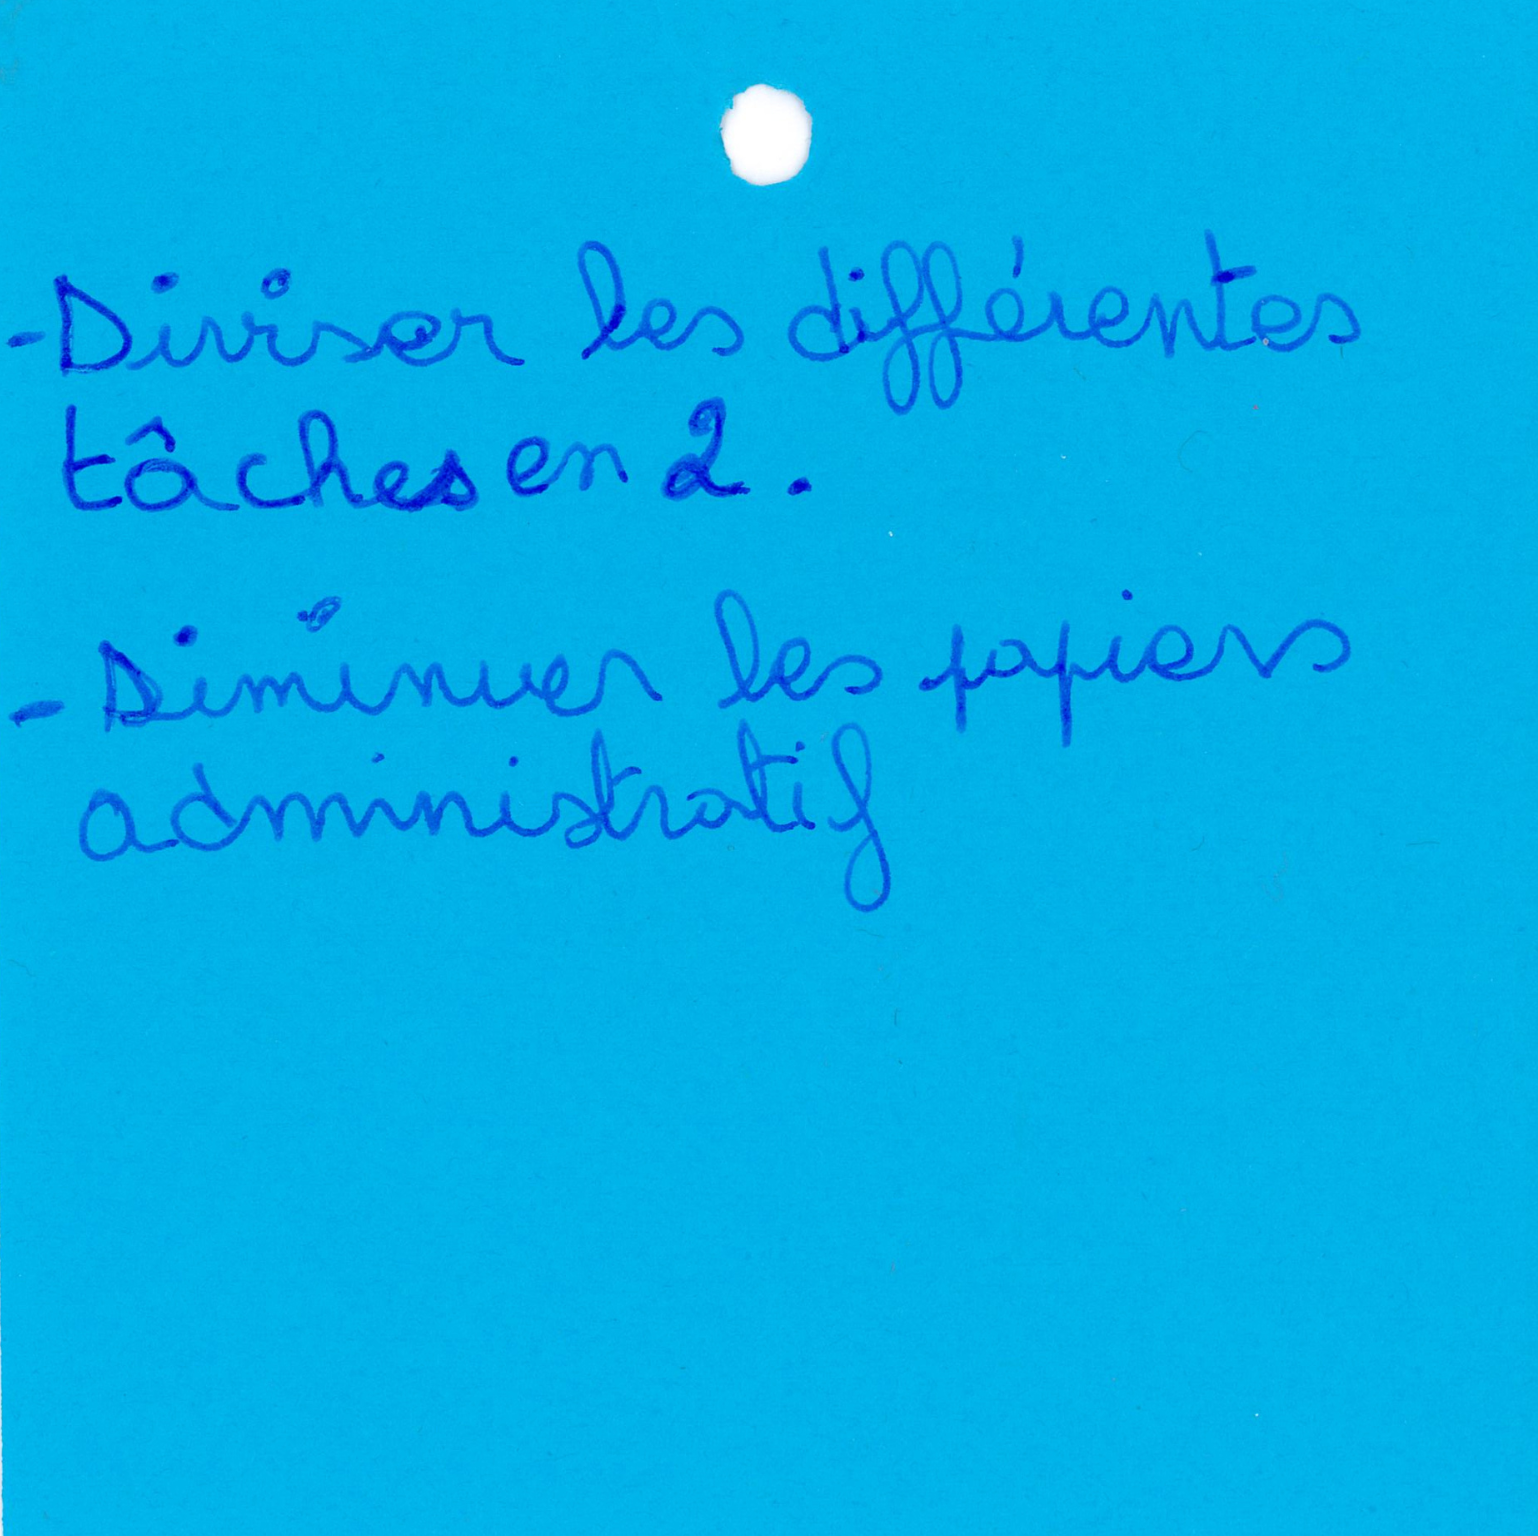 - Diviser les différentes
tâches en 2.
- Diminuer les papiers
administratif